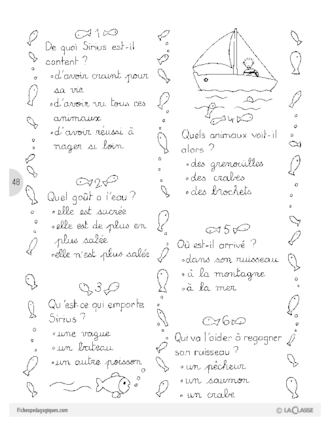 1
De quoi Sirius est-il
content ?
• d'avoir craint pour
sa vie
• d'avoir vu tous ces
animaux
• d'avoir réussi à
nager si loin
2
Quel goût a l'eau ?
• elle est sucrée
• elle est de plus en
plus salée
• elle n'est plus salée
3
Qu'est-ce qui emporte
Sirius ?
• une vague
• un bateau
• un autre poisson
4
Quels animaux voit-il
alors ?
• des grenouilles
• des crabes
• des brochets
5
Où est-il arrivé ?
• dans son ruisseau
• à la montagne
• à la mer
6
Qui va l'aider à regagner
son ruisseau ?
• un pêcheur
• un saumon
• un crabe
48
Fichespedagogiques.com
© LA CLASSE